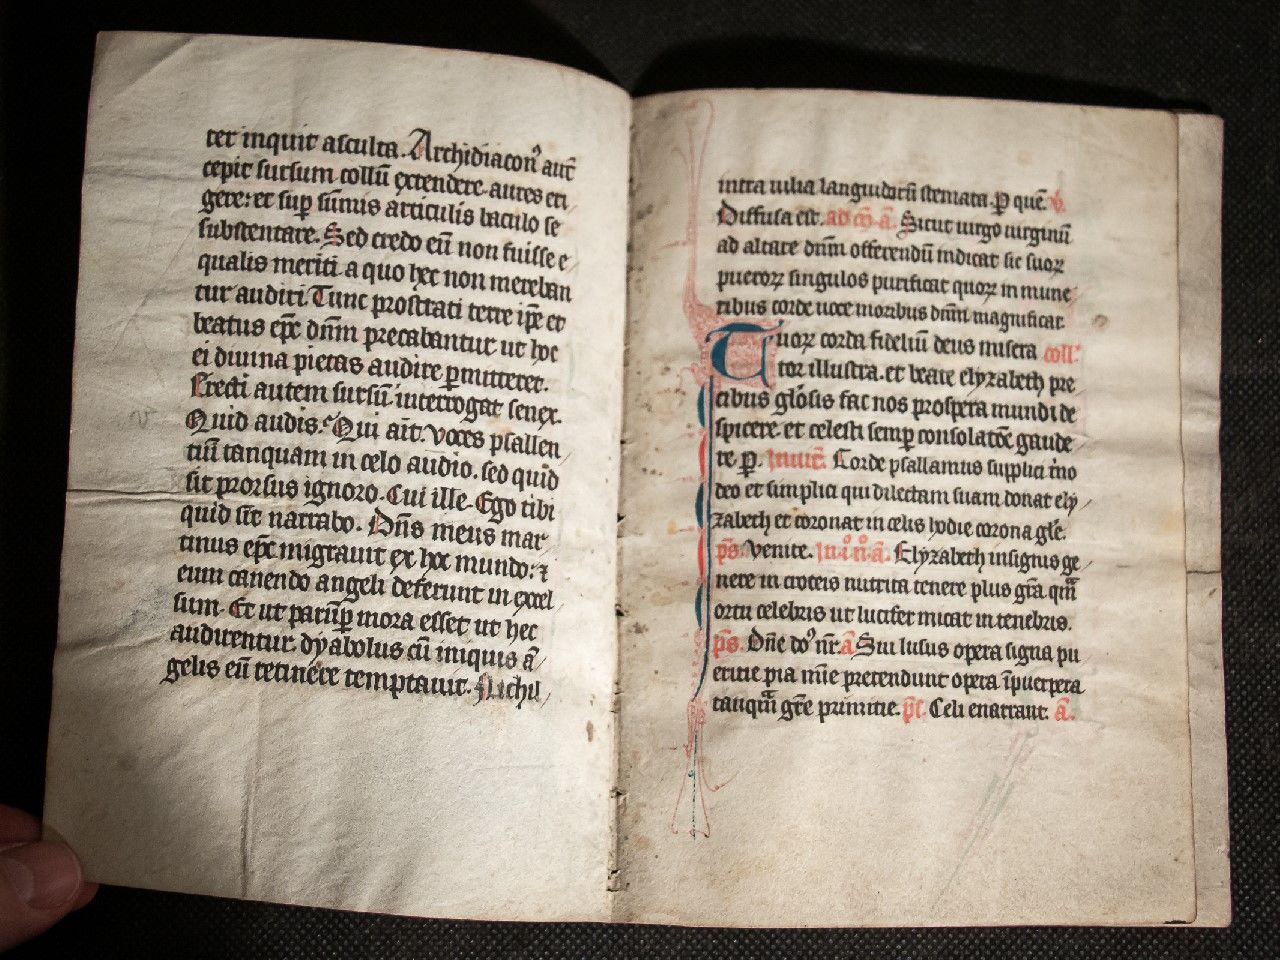 ter inquit asculta. Archidiacon⁹ aut̄
cepit sursum collū extendere aures eri
gere: et sup̱ sūmus articulis baculo se
substentare. Sed credo eū non fuisse e
qualis meriti a quo hec non mereban
tur audiri Tunc prostrati terre ip̄e et
beatus ep̄c dn̄m precabantur ut hoc
ei diuina pietas audire ꝑmitteret.
Erecti autem sursū interrogat senex.
Quid audis. Qui ait. voces psallen
tiū tanquam in celo audio. sed quid
sit prorsus ignoro. Cui ille. Ego tibi
quid sit narrabo. Dn̄s meus mar
tinus ep̄c migrauit ex hoc mundo: ⁊
eum canendo angeli deferunt in excel
sum. Et ut parūꝑ mora esset ut hec
audirentur. dyabolus cū iniquis ā
gelis eū retinere temptauit. Nichil
intra uilia languidorū stemata. ꝑ quē. v̄.
Diffusa est. ad m̄ ā. Sicut uirgo uirginū
ad altare dn̄m offerendū indicat sic suoꝝ
pueroꝝ singulos purificat quoꝝ in mune
ribus corde uoce moribus dn̄m magnificat.
Tuoꝝ corda fideliū deus misera coll̄
tor illustra. et beate elyzabeth pre
cibus gl̄osis fac nos prospera mundi de
spicere. et celesti semꝑ consolatōe gaude
re. ꝑ. Inuit̄. Corde psallamus supplici ym̄no
deo et simplici qui dilectam suam donat ely
zabeth et coronat in celis hodie corona gl̄e.
ps̄. Venite. In .i. n⁰. ā. Elyzabeth insignis ge
nere in croceis nutrita tenere plus gr̄a. qm̄
ortu celebris ut lucifer micat in tenebris.
ps̄. Dn̄e do⁹ nr̄. ā Sui lusus opera signa pu
eritie pia mīe pretendunt opera ī puerpera
tanqm̄ gr̄e primitie. ps̄. Celi enarrant. ā.